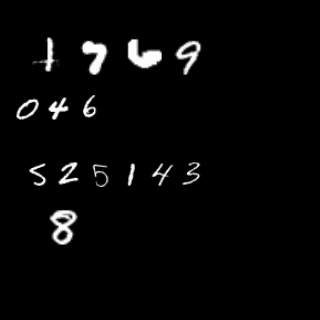 1769
046
525143
8